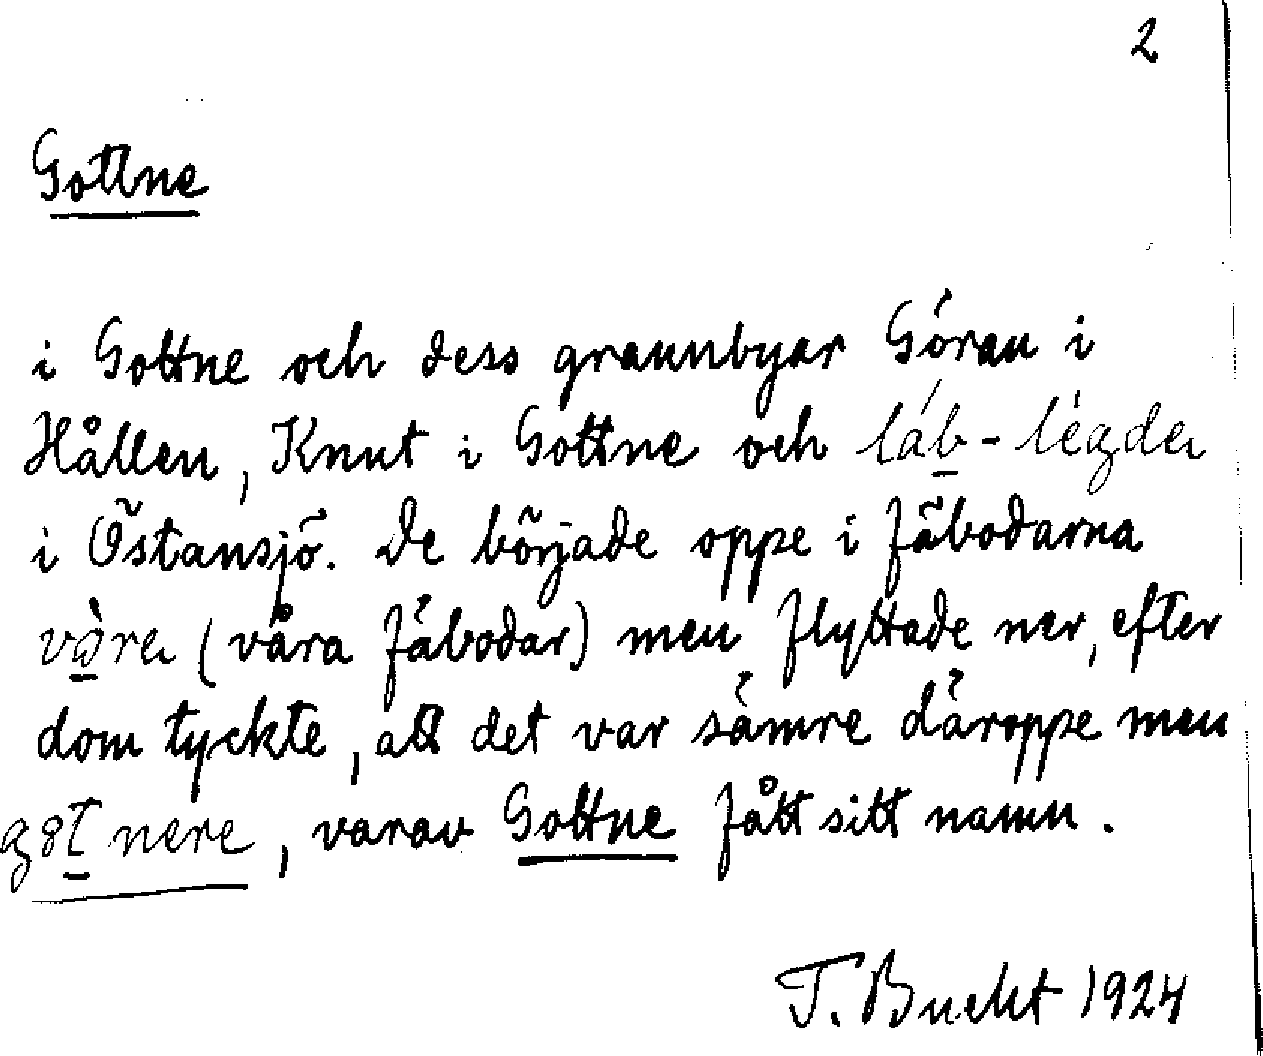 2
Gottne
i Gottne och dess grannbyar Göran i
Hållen, Knut i Gottne och láb-légdeɹ
i Östansjö. De började oppe i fäbodarna
(våra fäbodar) men flyttade ner, efter
dom tyckte, att det var sämre däroppe men
nere, varav Gottne fått sitt namn.
T. Bucht 1924